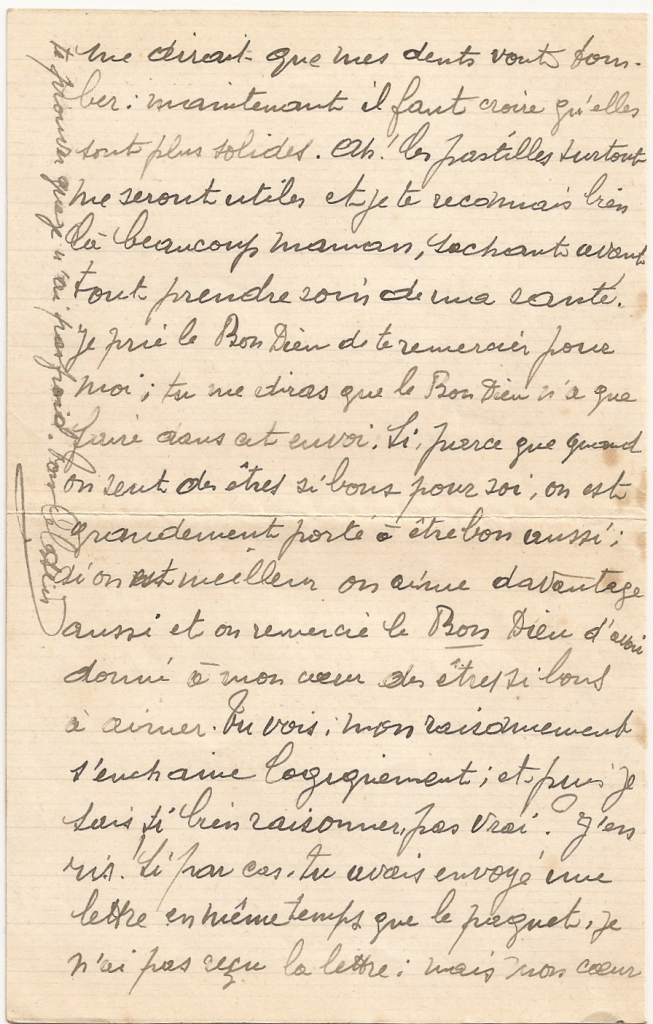 me dirait que mes dents vont tom-
ber : maintenant il faut croire qu'elles
sont plus solides. Ah ! les pastilles surtout
me seront utiles et je te reconnais bien
là beaucoup maman, sachant avant
tout prendre soin de ma santé.
Je prie le Bon Dieu de te remercier pour
moi ; tu me diras que le Bon Dieu n'a que
faire dans cet envoi. Si, parce que quand
on sent des êtres si bons pour soi, on est
grandement porté à être bon aussi ;
si on est meilleur on aime davantage
aussi et on remercie le Bon Dieu d'avoir
donné à mon cœur des êtres si bons
à aimer. Tu vois, mon raisonnement
s'enchaine logiquement ; et puis je
sais si bien raisonner, pas vrai ? J'en
ris. Si par cas, tu avais envoyé une
lettre en même temps que le paquet, je
n'ai pas reçu la lettre : mais mon cœur
te prouver que je n'ai pas froid. Ton